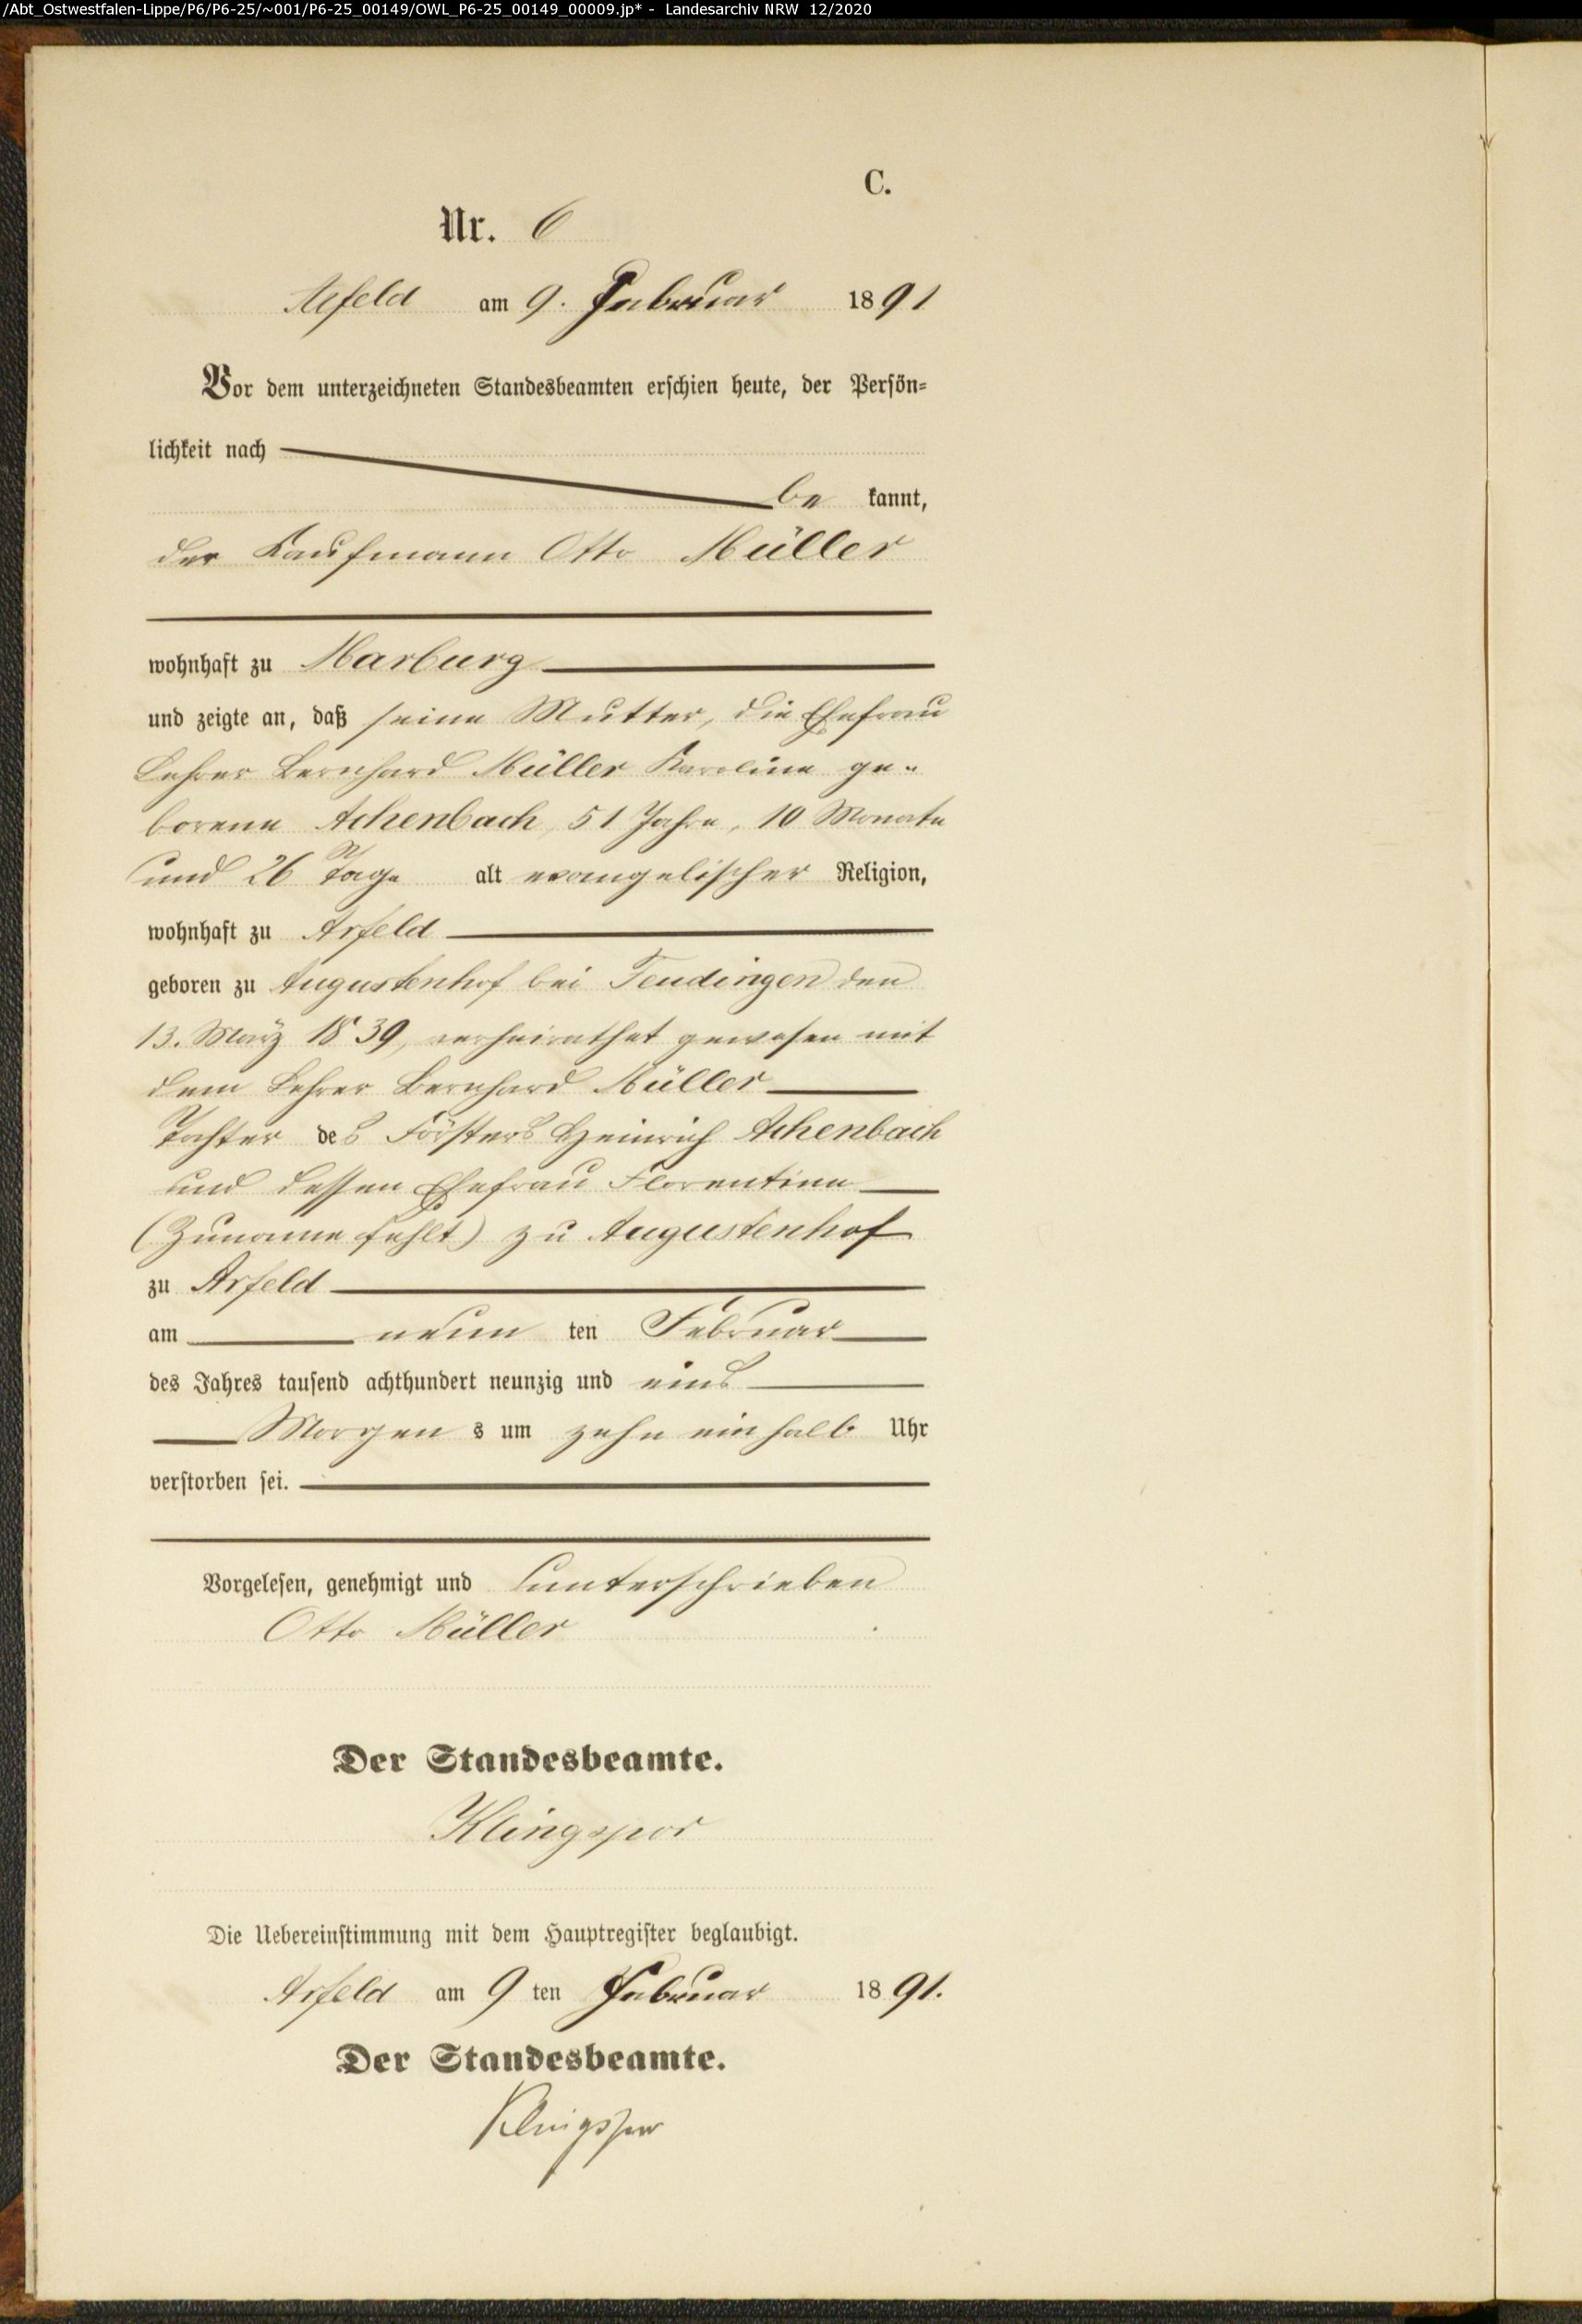 /Abt_Ostwestfalen-Lippe/P6/P6-25/~001/P6-25_00149/OWL_P6-25_00149_00009.jp* - Landesarchiv NRW 12/2020
C.
Nr. 6
Arfeld am 9. Februar 1891
Vor dem unterzeichneten Standesbeamten erschien heute, der Persön=
lichkeit nach
be kannt,
der Kaufmann Otto Müller
wohnhaft zu Marburg
und zeigte an, daß seine Mutter, die Ehefrau
Lehrer Bernhard Müller Karoline ge-
borene Achenbach, 51 Jahre, 10 Monate
und 26 Tage alt evangelischer Religion,
wohnhaft zu Arfeld
geboren zu Augustenhof bei Feudingen den
13. März 1839, verheirathet gewesen mit
dem Lehrer Bernhard Müller
Tochter des Försters Heinrich Achenbach
und dessen Ehefrau Florentine
(Zuname fehlt) zu Augustenhof
zu Arfeld
am neun ten Februar
des Jahres tausend achthundert neunzig und eins
Morgen s um zehn ein halb Uhr
verstorben sei.
Vorgelesen, genehmigt und unterschrieben
Otto Müller
Der Standesbeamte.
Klingspor
Die Uebereinstimmung mit dem Hauptregister beglaubigt.
Arfeld am 9 ten Februar 1891.
Der Standesbeamte.
Klingspor